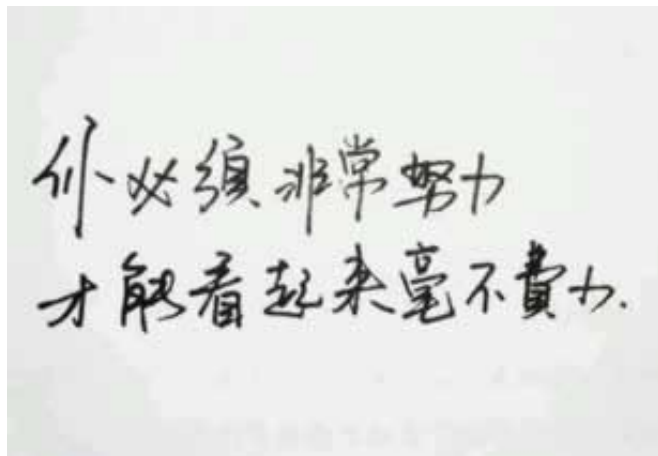 你必須非常努力
才能看起来毫不費力.